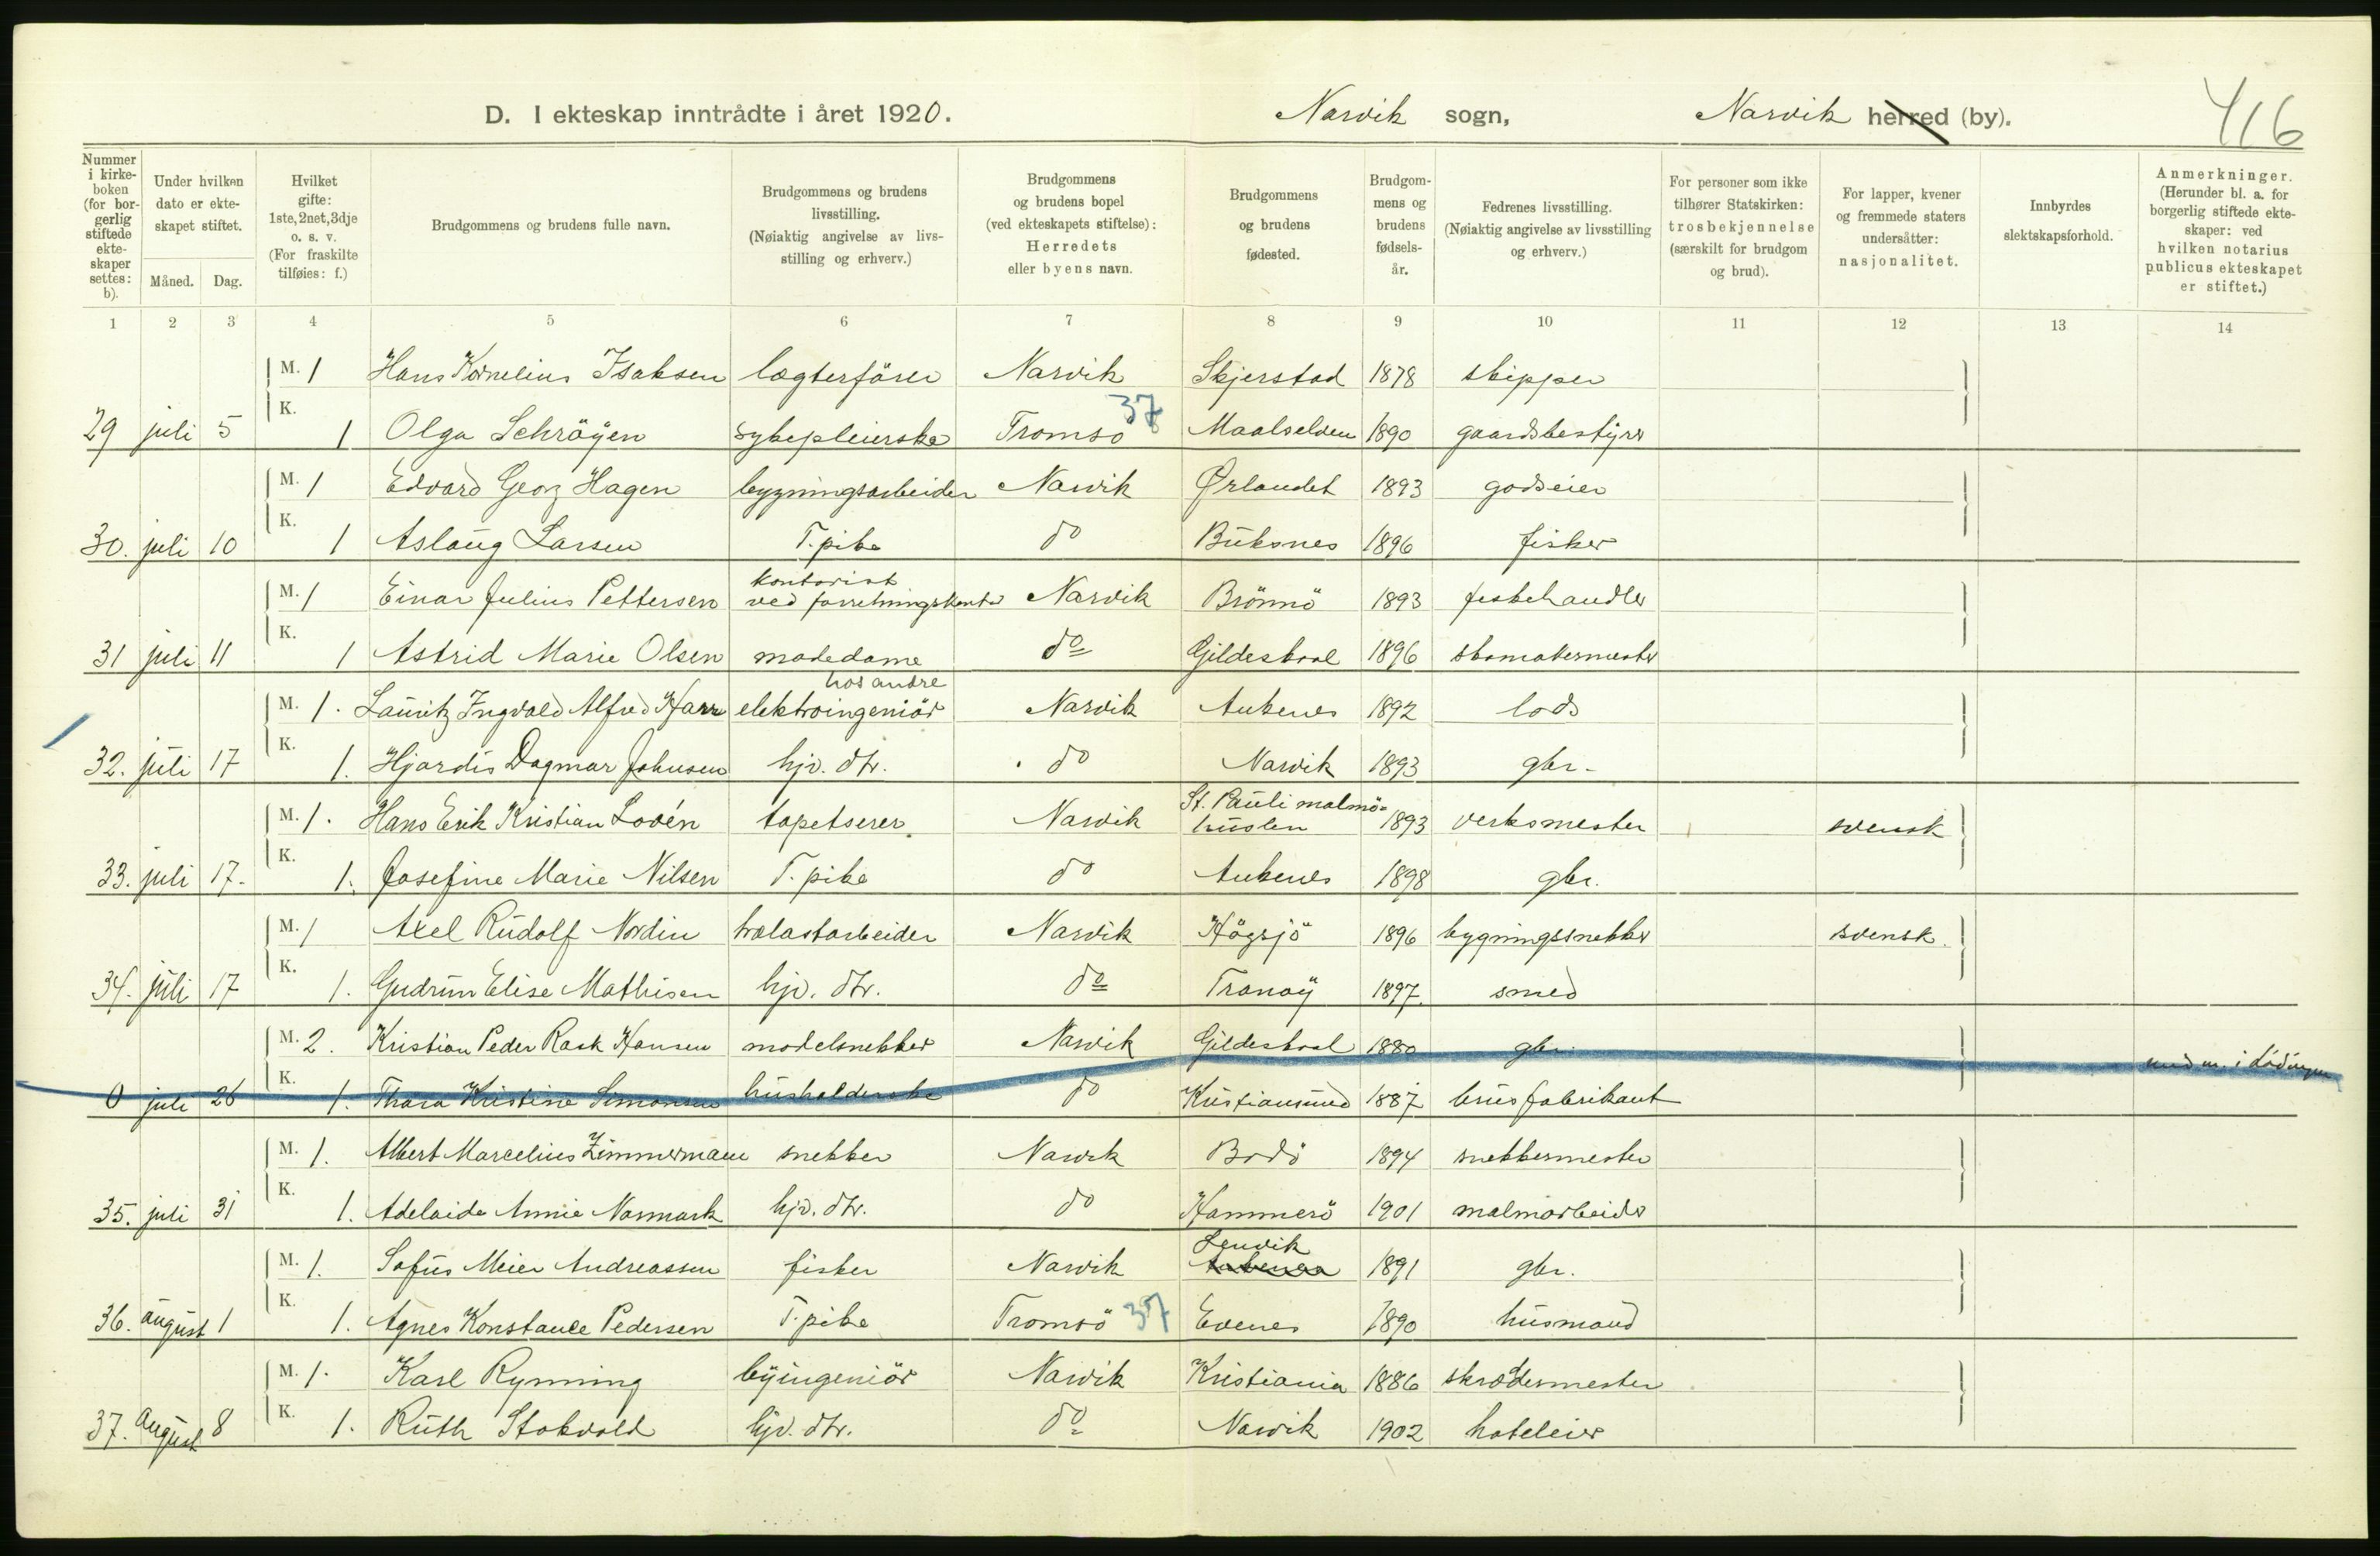 D. I ekteskap inntrådte i året 1920. Narvik sogn, Narvik herred (by). 416
Nummer i kirke-boken (for bor-gerlig stiftede ekte-skaper settes: b).
Under hvilken dato er ekte-skapet stiftet.
Måned. Dag.
Hvilket gifte: 1ste, 2net, 3dje o. s. v. (For fraskilte tilføies: f.)
Brudgommens og brudens fulle navn.
Brudgommens og brudens livsstilling. (Nøiaktig angivelse av livs-stilling og erhverv.)
Brudgommens og brudens bopel (ved ekteskapets stiftelse): Herredets eller byens navn.
Brudgommens og brudens fødested.
Brudgom-mens og brudens fødsels-år.
Fedrenes livsstilling. (Nøiaktig angivelse av livsstilling og erhverv.)
For personer som ikke tilhører Statskirken: trosbekjennelse (særskilt for brudgom og brud).
For lapper, kvener og fremmede staters undersåtter: nasjonalitet.
Innbyrdes slektskapsforhold.
Anmerkninger. (Herunder bl. a. for borgerlig stiftede ekte-skaper: ved hvilken notarius publicus ekteskapet er stiftet.)
1 2 3 4 5 6 7 8 9 10 11 12 13 14
M. 1 Hans Kornelius Isaksen lægterförer Narvik Skjerstad 1878 skipper
29 juli 5 K. 1 Olga Schröyen sykepleierske Tromsö 37 Maalselven 1890 gaardsbestyrer
M. 1 Edvard Georg Hagen bygningsarbeider Narvik Ørlandet 1893 godseier
30. juli 10 K. 1 Aslaug Larsen T. pike do Buksnes 1896 fisker
M. 1 Einar Julius Pettersen kontorist ved forretningskontor Narvik Brönnö 1893 feskehandler
31 juli 11 K. 1 Astrid Marie Olsen motedame hos andre do Gildeskaal 1896 skomakermester
M. 1. Lauritz Ingvald Alfred Harr elektroingeniör Narvik Ankenes 1892 lods
32. juli 17 K. 1. Hjördis Dagmar Johnsen hjv. dtr. do Narvik 1893 gbr.
M. 1. Hans Erik Kristian Lovén tapetserer Narvik St. Pauli malmö=huslen 1893 verksmester svensk
33. juli 17. K. 1. Josefine Marie Nilsen T. pike do Ankenes 1898 gbr.
M. 1 Axel Rudolf Nordin trælastarbeider Narvik Högsjö 1896 bygningssnekker svensk.
34. juli 17 K. 1. Gudrun Elise Mathisen hjv. dtr. do Tranöy 1897. smed
M. 2. Kristian Peder Rask Hansen modelsnekker Narvik Gildeskaal 1880 gbr.
0 juli 26 K. 1. Thora Kristine Simonsen husholderske do Kristiansund 1887 brusfabrikant
M. 1. Albert Marcelius Zimmermann snekker Narvik Bodö 1894 snekkermester
35. juli 31 K. 1. Adelaide Annie Normark hjv. dtr. do Hammerö 1901 malmarbeider
M. 1. Sofus Meier Andreassen fisker Narvik Lenvik 1891 gbr.
36. august 1 K. 1. Agnes Konstance Pedersen T. pike Tromsö 37 Evenes 1890 husmand
M. 1. Karl Rynning byingeniör Narvik Kristiania 1886 skrædermester
37. august 8 K. 1. Ruth Stokvold hjv. dtr. do Narvik 1902 hoteleier